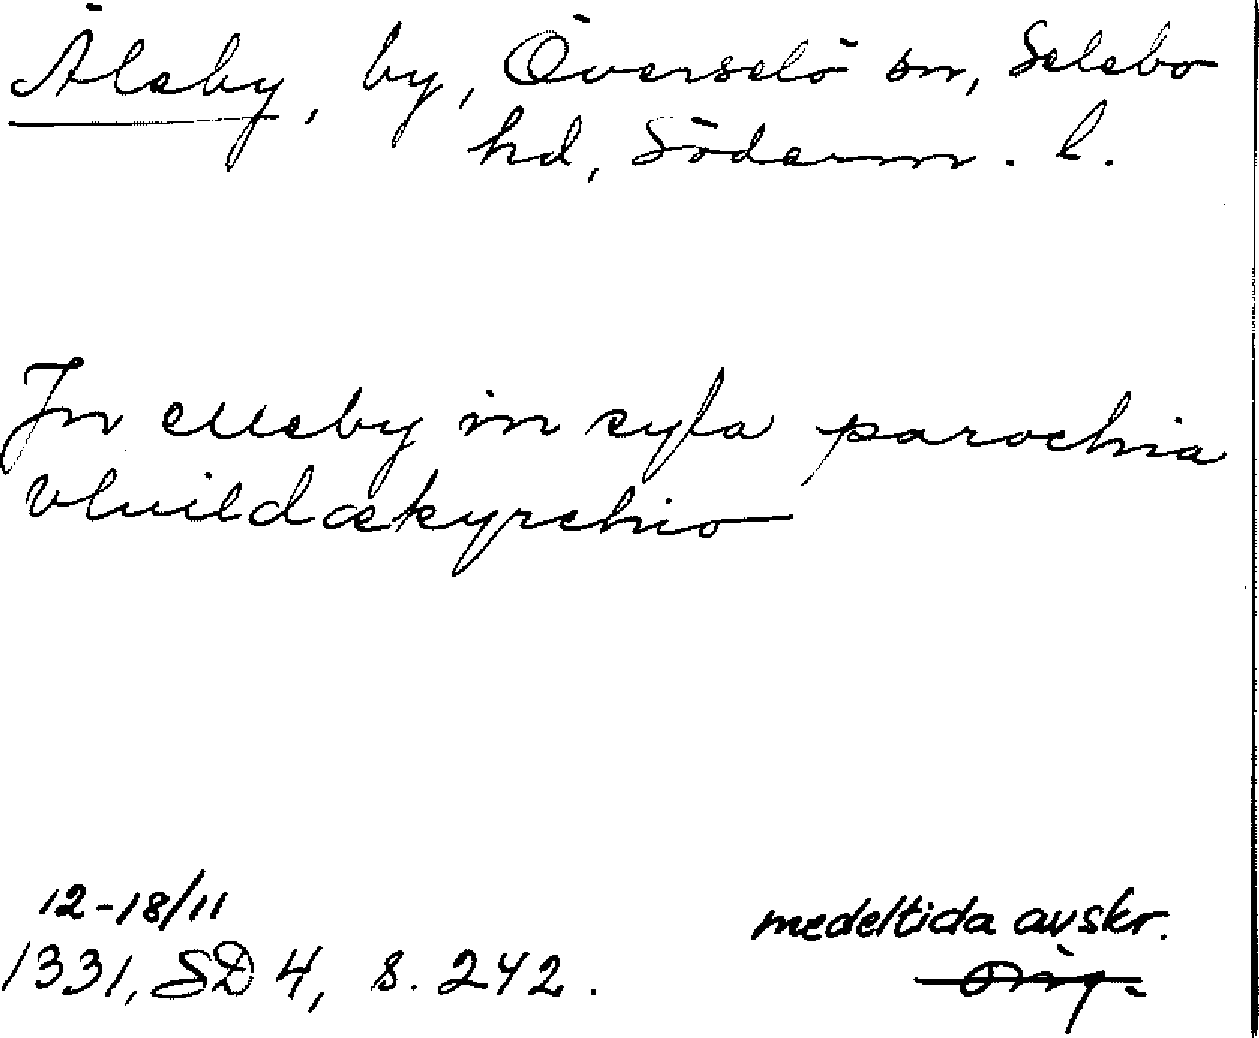 Åleby, by, Överselö sn, Selebo
hd, Söderm. l.
Jn elleby in syla parochia
vluildækyrchio
12-18/11
1331, SD 4, s. 242.
medeltida avskr.
orig.